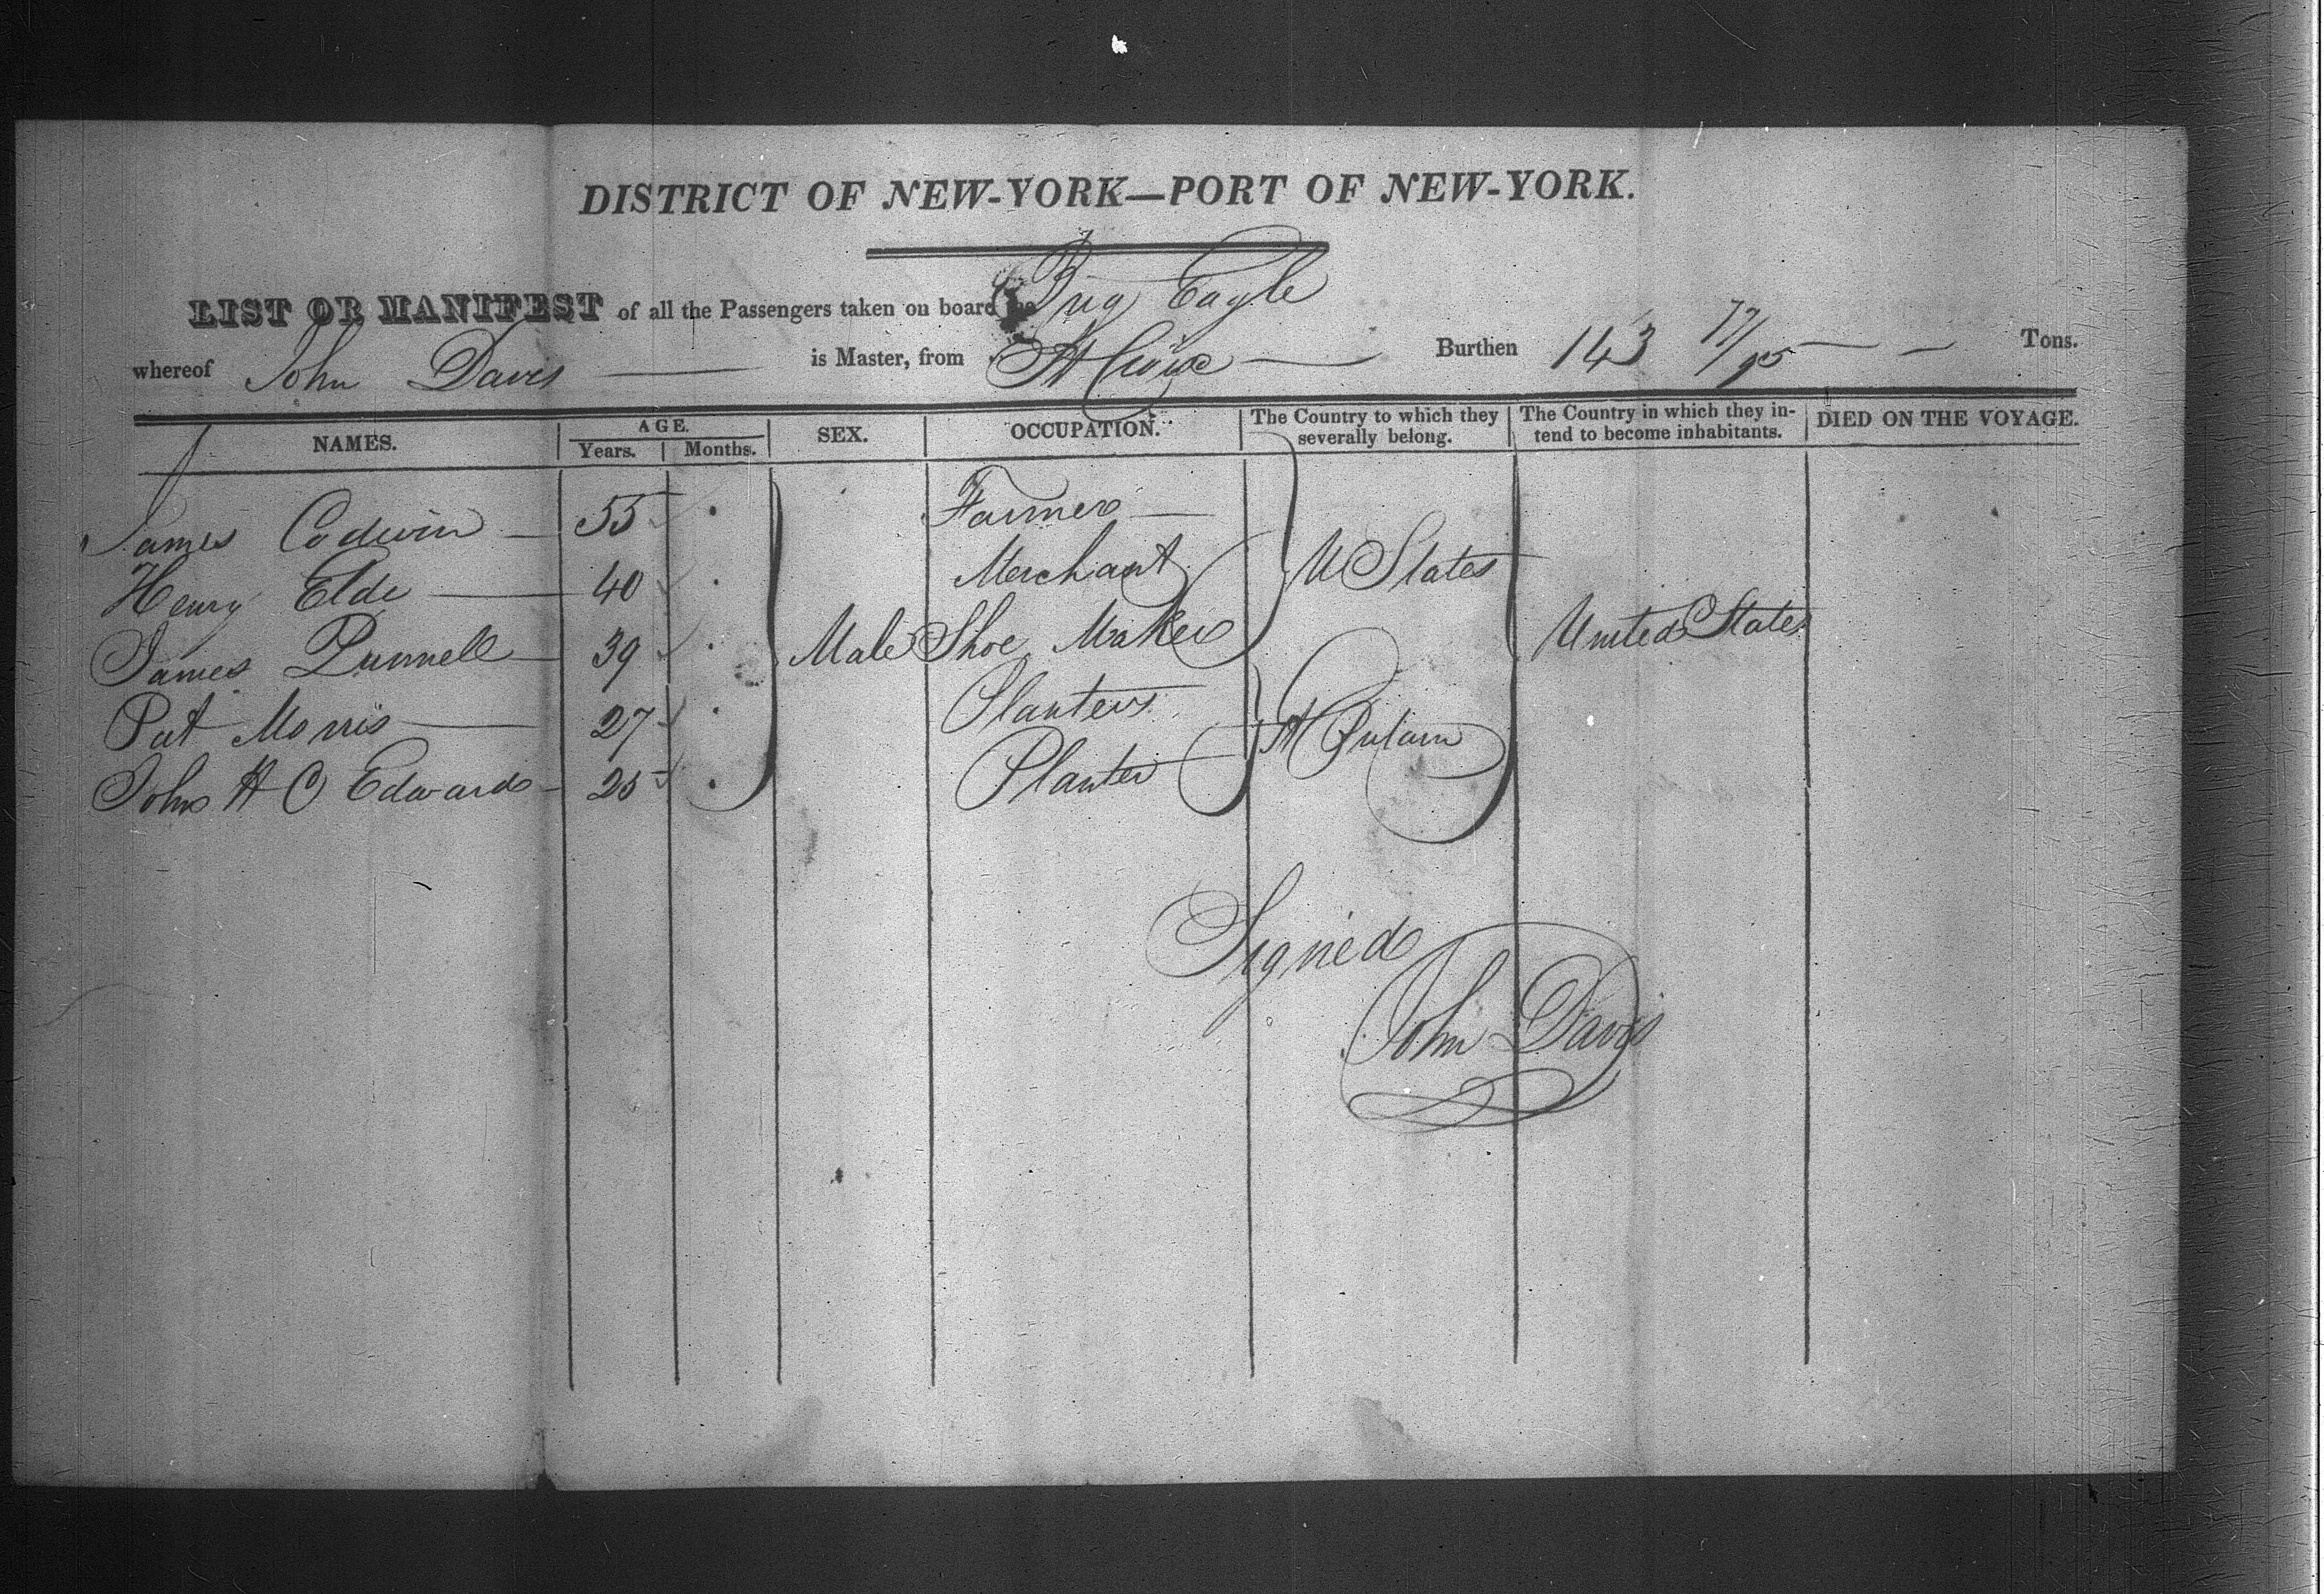 DISTRICT OF NEW-YORK—PORT OF NEW-YORK.
LIST OR MANIFEST of all the Passengers taken on board the Brig Eagle
whereof John Davis is Master, from St Croix Burthen 143 77/95 Tons.
NAMES. AGE. Years. Months. SEX. OCCUPATION. The Country to which they severally belong. The Country in which they intend to become inhabitants. DIED ON THE VOYAGE.
James Codwin 55 Farmer
Henry Elde 40 Merchant U States
James Punnell 39 Male Shoe Maker United States
Pat Morris 27 Planters
John H C Edwards 25 Planter
Signed
John Davis